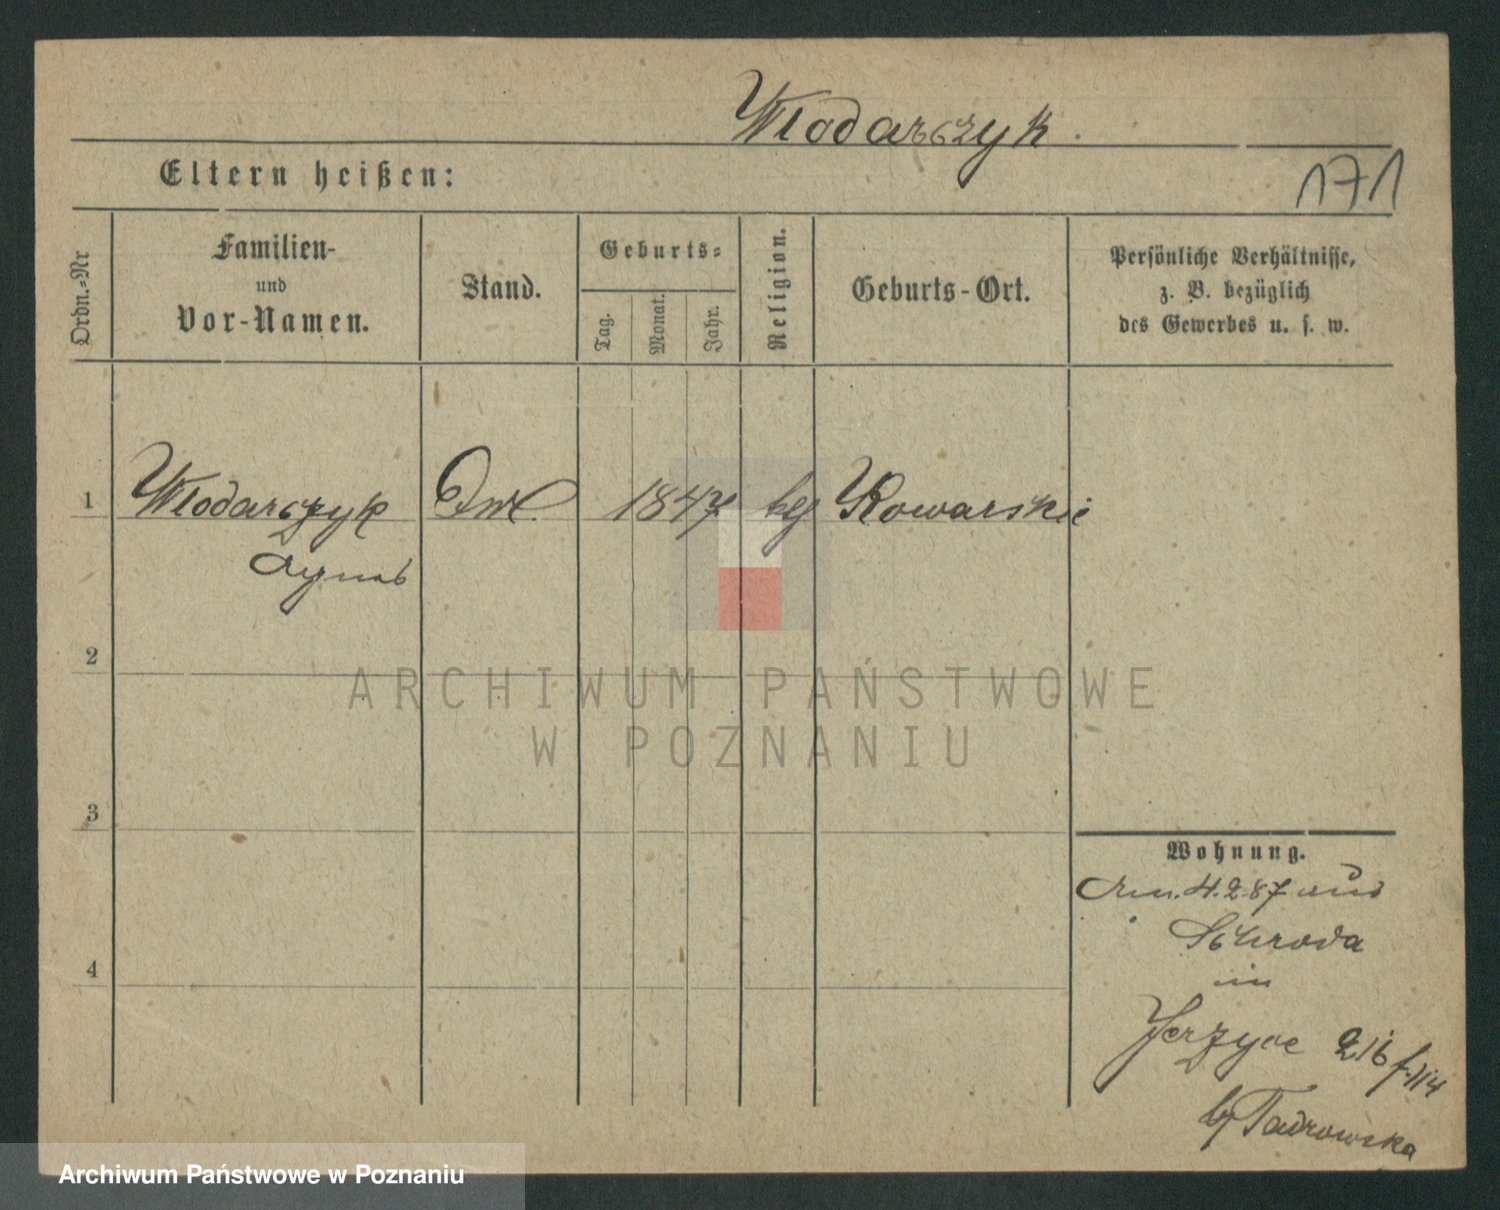 Wlodarczyk.
Eltern heißen:
171
Ordn.-Nr
Familien-
und
Vor-Namen.
Stand.
Geburts-
Tag.
Monat.
Jahr.
Religion.
Geburts-Ort.
Persönliche Verhältnisse,
z. B. bezüglich
des Gewerbes u. s. w.
1 Wlodarczyk 1847 Kowarskie
2
3
4
ARCHIWUM PAŃSTWOWE
W POZNANIU
Wohnung.
4.2.87 aus
Schroda
in
Jerzyce
Archiwum Państwowe w Poznaniu